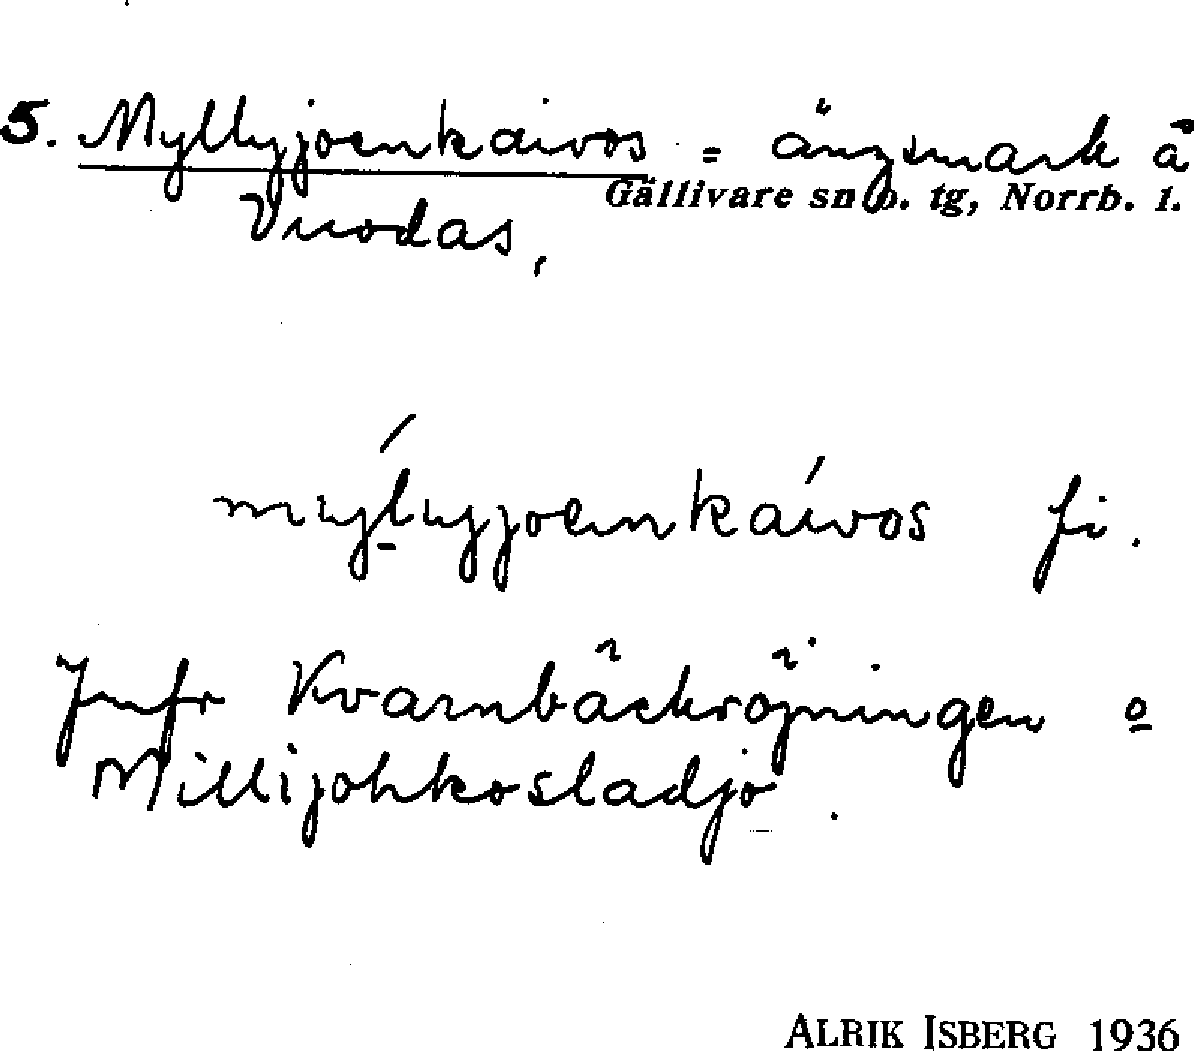 5. Myllyjoenkaivos = ängsmark å
Gällivare sn o. tg, Norrb. l.
Vuodas,
mylyjoenkáivos fi.
Jmfr Kvarnbäckröjningen o
Millijohkosladjo.
ALRIK ISBERG 1936